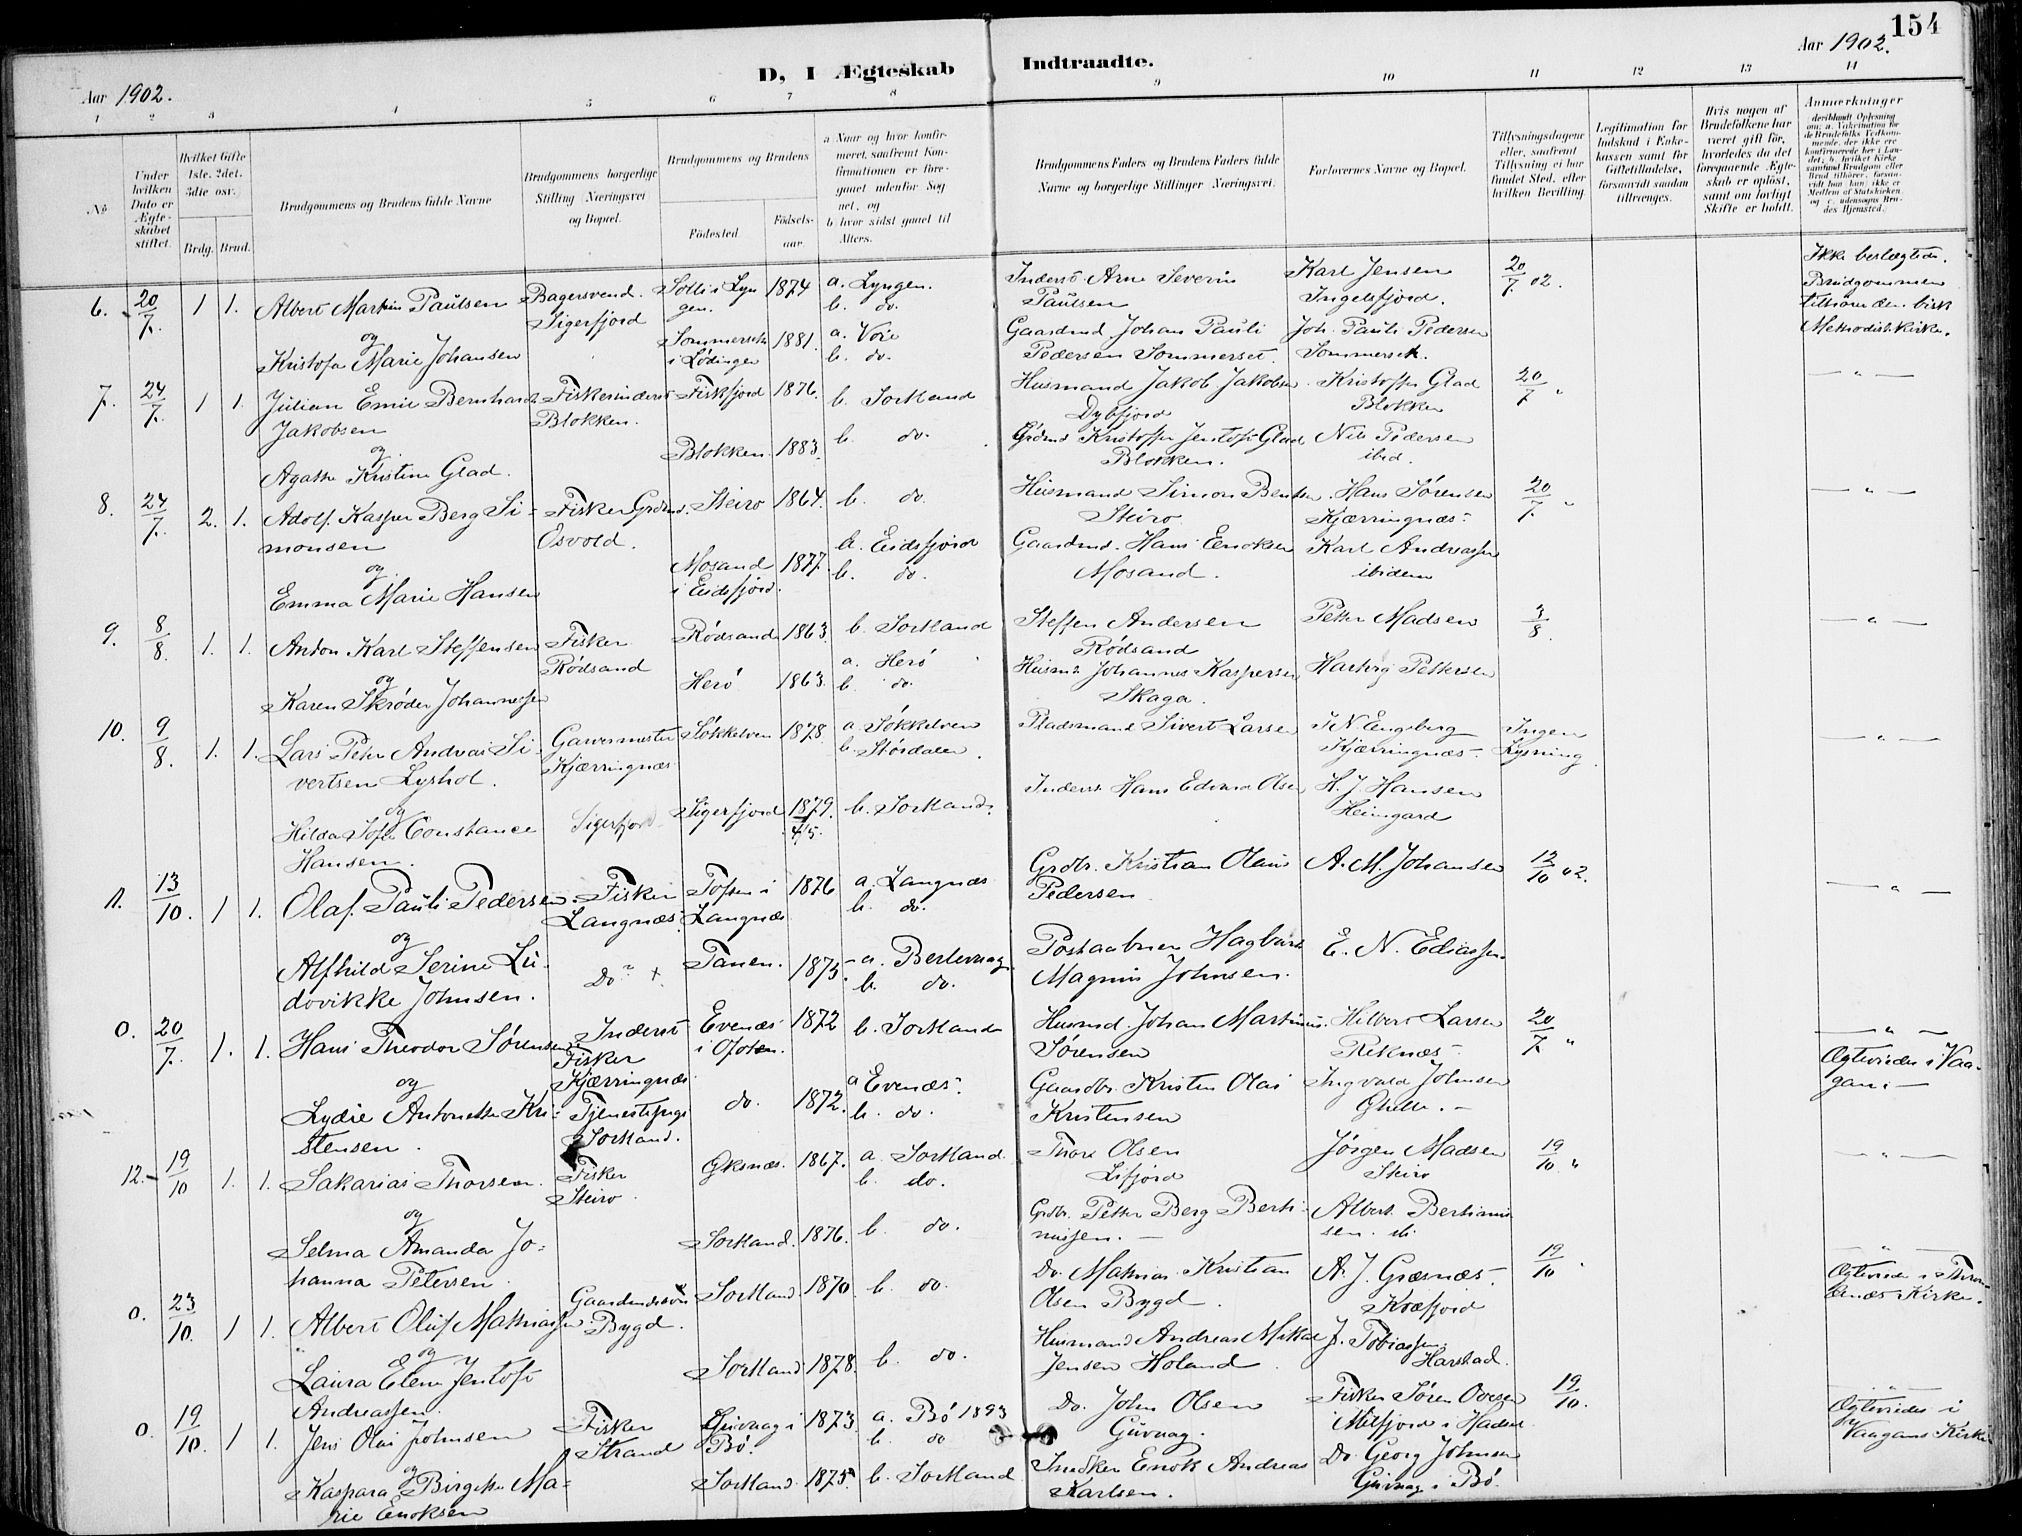 154
Aar 1902.
D, I Ægteskab Indtraadte.
Aar 1902.
1 2 3 4 5 6 7 8 9 10 11 12 13 14
No
Under hvilken Dato er Ægteskabet stiftet.
Hvilket Gifte 1ste, 2det, 3die osv.
Brdg. Brud.
Brudgommens og Brudens fulde Navne
Brudgommens borgerlige Stilling Næringsvei og Bopæl.
Brudgommens og Brudens
Fødested.
Fødselsaar.
a Naar og hvor konfirmeret, saafremt Konfirmationen er foregaaet udenfor Sognet, og
b. hvor sidst gaaet til Alters.
Brudgommens Faders og Brudens Faders fulde Navne og borgerlige Stillinger Næringsvei.
Forlovernes Navne og Bopæl.
Tillysningsdagene eller, saafremt Tillysning ei har fundet Sted, efter hvilken Bevilling
Legitimation for Indskud i Enkekassen samt for Giftetilladelse, forsaavidt saadan tiltrænges.
Hvis nogen af Brudefolkene har været gift før, hvorledes da det foregaaende Ægteskab er opløst, samt om lovligt Skifte er holdt.
Anmærkninger
6. 20/7. 1 1. Albert Martin Paulsen Bagersvend. Sigerfjord Lyngen. 1874 a. Lyngen. b. do. Inderst Arn Severin Paulsen Karl Jensen Ingelsfjord. 20/7 02. Ikke beslægtede. Brudgommen tilhører den bisk Methodistkirke.
og
Kristofa Marie Johansen i Lødingen 1881. a. Vore b. do. Gaardmd Johan Pauli Pedersen Sommerset. Joh. Pauli Pedersen
7. 24/7. 1 1. Julian Emil Bernhard Jakobsen Fiskerinderst Blokken. Fiskfjord 1876. b. Sortland Husmand Jakob Jakobsen Dybfjord Kristoffer Glad Blokken 20/7 " — " —
og.
Agathe Kristine Glad. Blokken. 1883. b. do. Grdmd Kristoffer Jentoft Glad Blokken. Nils Pedersen ibid.
8. 24/7. 2. 1. Adolf Kasper Berg Simonsen Fisker Grdmd. Osvold. Steiro 1864. b. do. Husmand Simon Bentsen Steiro Hans Sørensen Kjærringnæs. 20/7. " — " —
og.
Emma Marie Hansen Mosand i Eidsfjord. 1877. a. Eidsfjord b. do. Gaardmd. Hans Enoksen Mosand. Karl Andreassen ibidem
9. 8/8. 1. 1. Anton Karl Steffensen Fisker Rødsand Rødsand 1863. b. Sortland Steffen Andersen Rødsand Peter Madsen 3/8. — " —
og
Karen Skrøder Johannessen Herø 1863. a. Herø b. do. Husmd. Johannes Kaspersen Skaga. Hartvig Pettersen
10. 9/8. 1. 1. Lars Peter Andreas Sivertsen Lyshol. Garvermester Kjærringnæs Søkkelven 1878 a. Søkkelven b. Størdalen Pladsmand Sivert Larsen J N Engeberg Kjærringnæs. Ingen Lysning — " —
og
Hilda Sofie Constance Hansen. Sigerfjord Sigerfjord 1879. 4/5. b. Sortland. Inderst Hans Edvar Olsen H. J. Hansen Heimgard
11. 13/10. 1 1. Olaf Pauli Pedersen Fisker Langnæs. Tofsen i Langnæs 1876 a. Langnæs b. do. Grdbr. Kristian Olaus Pedersen. A. M. Johansen 12/10 02. — " —
og
Alfhild Serine Ludovikke Johnsen. Do Tanen. 1875. a. Berlevaag. b. do. Postaabner Hagbart Magnus Johnsen. E. N. Eliassen
0. 20/7. 1. 1. Hans Theodor Sørensen Inderst Fisker Kjærringnæs Evenæs i Ofoten. 1872 b. Sortland Husmd. Johan Martinus Sørensen Hilbert Larsen Reknæs 20/7. " — " — Ægteviedes i Vaagan. —
og
Lydie Antonette Kristensen. Tjenestepige Sortland. do. 1872. a Evenæs. b. do. Gaardbr. Kristen Olai Kristensen Ingvald Johnsen
12. 19/10 1. 1. Sakarias Thorsen. Fisker Steiro. Øksnæs. 1867. a. Sortland. b. do. Thore Olsen Lifjord Jørgen Madsen Steiro 19/10 " — " —
og
Selma Amanda Johanna Petersen. Sortland. 1876. b. do. Grdbr. Petter Berg Bertinussen. — Albert Bertinussen. ib.
0. 23/10. 1 1. Albert Oluf Mathiassen Gaardmandssøn Bygd. Sortland 1870. b. do. Do. Mathias Kristian Olsen Bygd. A. J. Græsnæs. Kvæfjord 19/10 — " — Ægteviede i Throndenæs Kirke.
og
Laura Elene Jentoft Andreassen. Sortland 1878. b. do. Husmand Andreas Mikal Jensen Holand J. Tobiassen Harstad.
0. 19/10. 1 1. Jens Olai Johnsen Fisker Strand Guvaag i Bø. 1873. a. Bø 1893 b. do Do. John Olsen Guvaag. Fisker Søren Ovesen i Melfjord i Hadsel 19/10. — " — Ægteviede i Vaagans Kirke
og
Kaspara Birgitte Marie Enoksen Sortland. 1875. b. Sortland Snedker Enok Andreas Karlsen. Do. Georg Johnsen Guvaag i Bø.